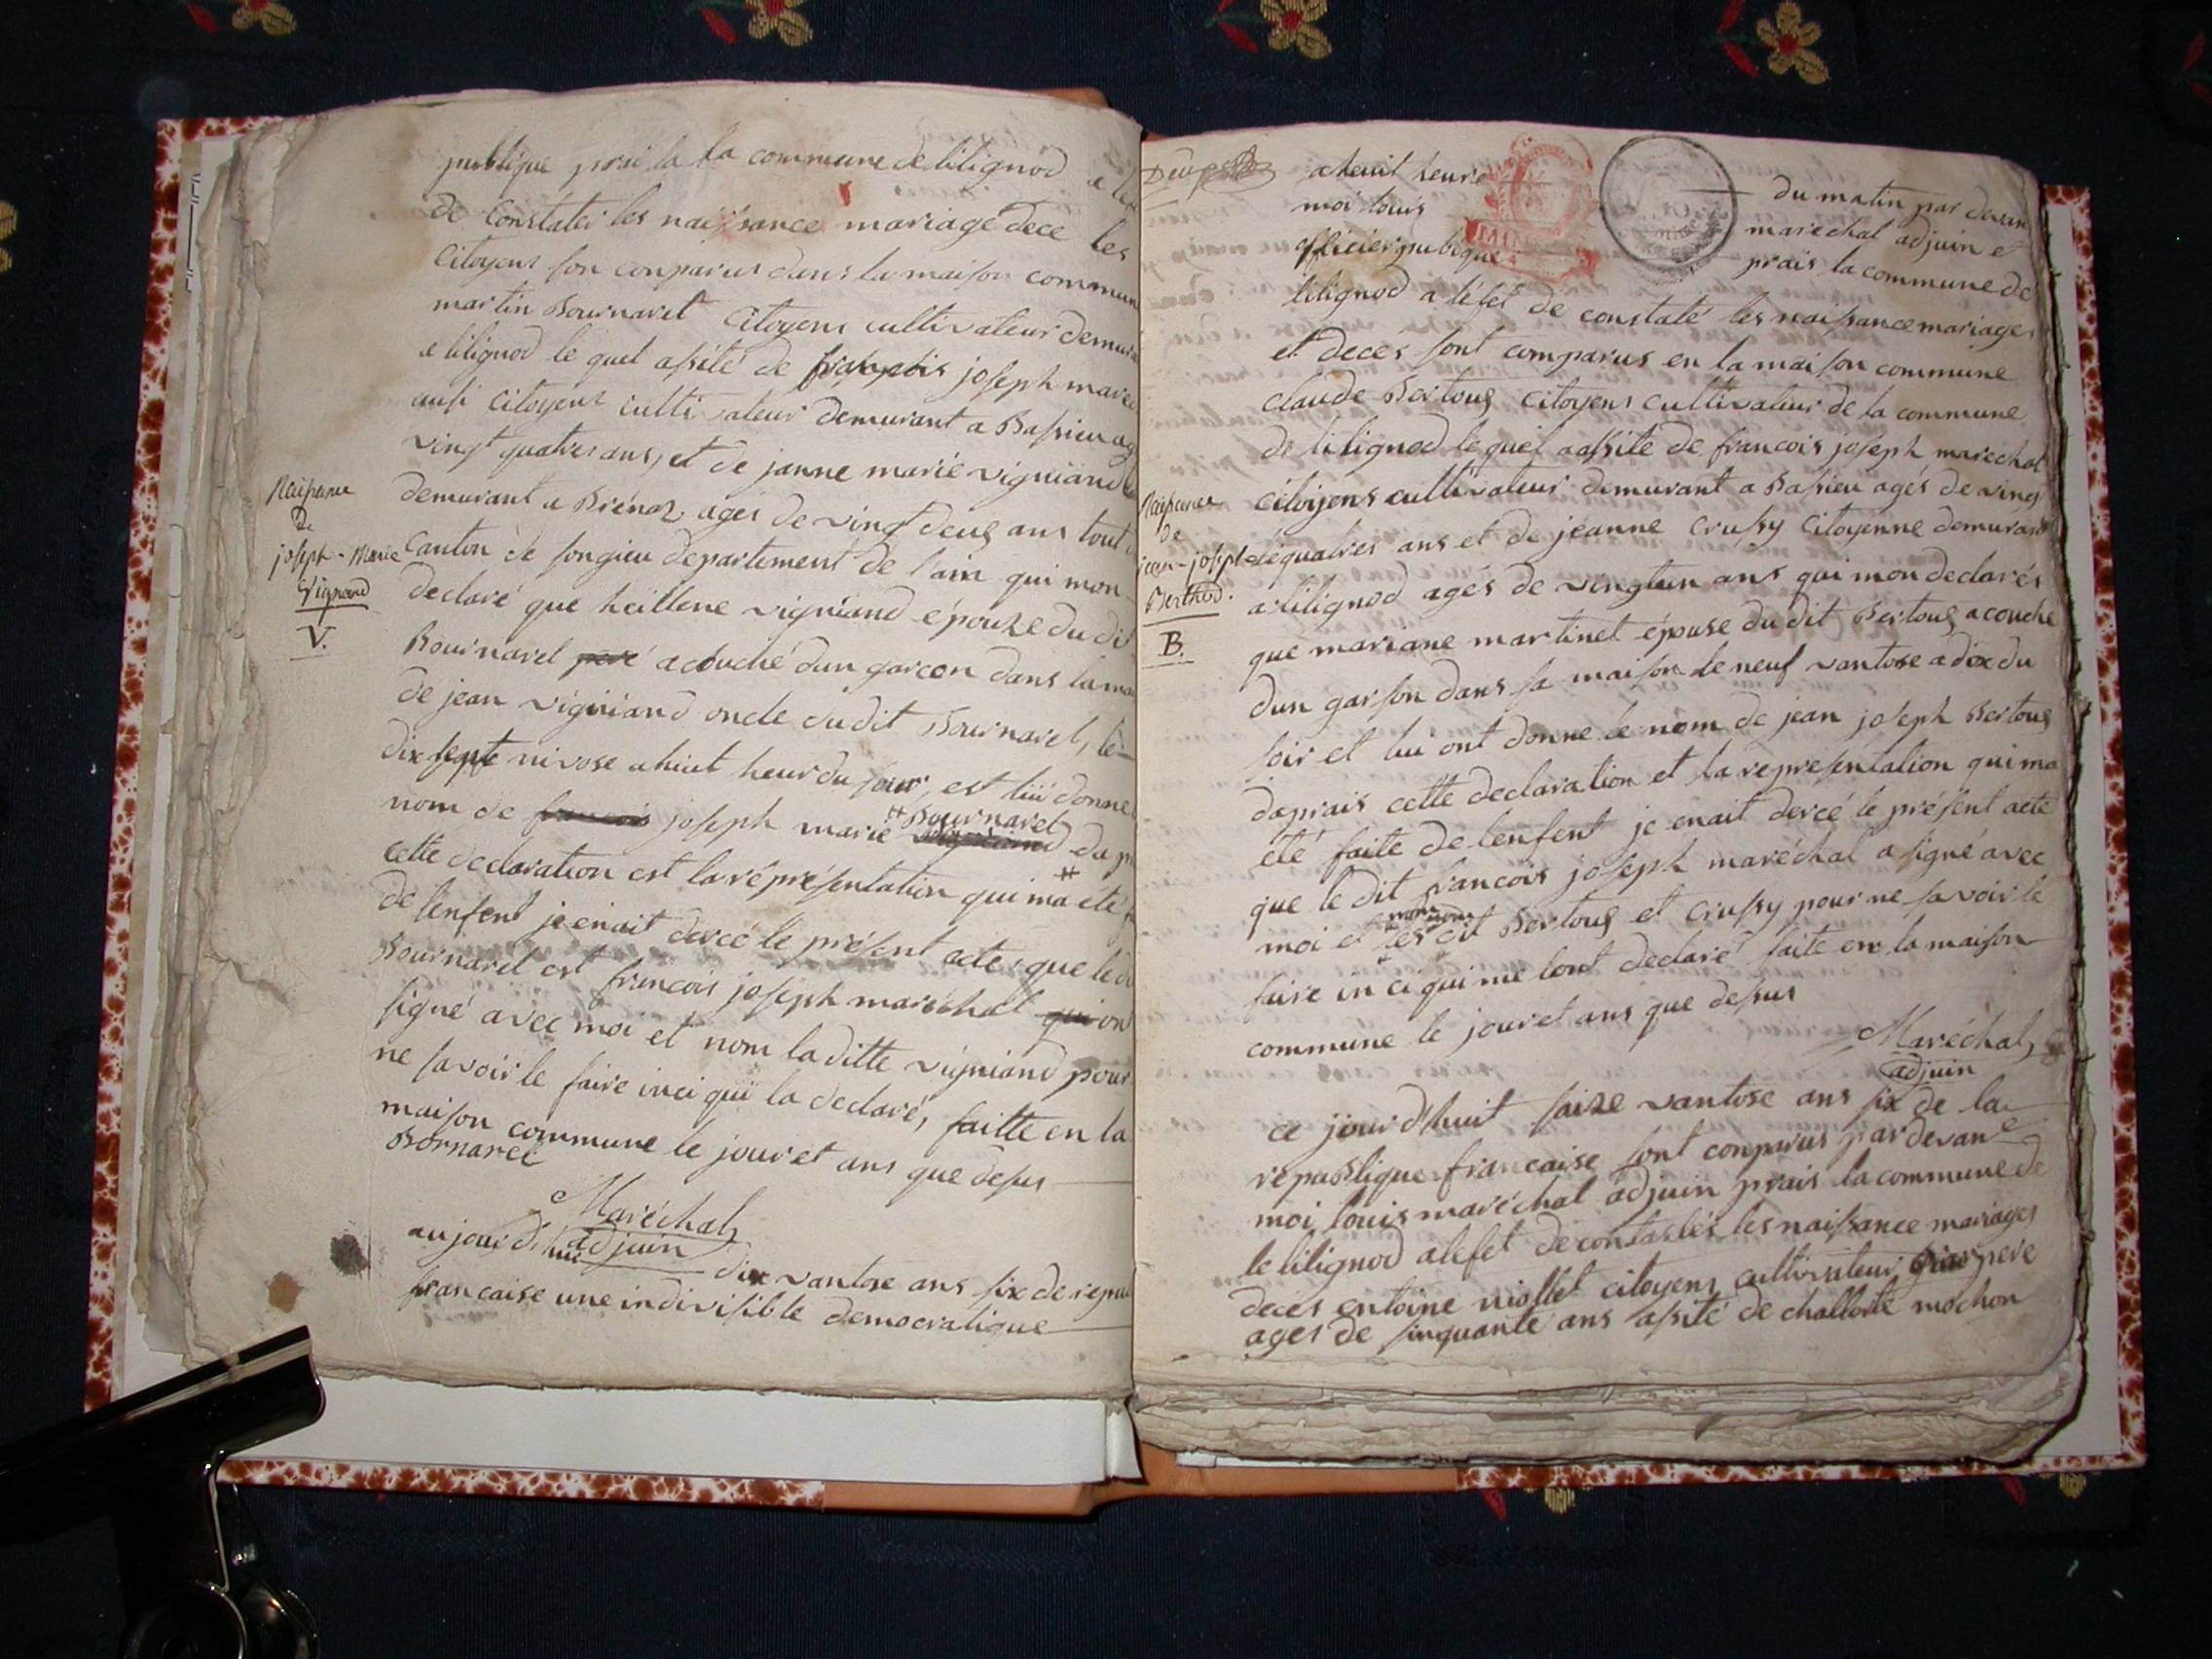 publique prai la la commune de lilignod a
de Constater les naissance mariage dece les
Citoyens son conparus dans la maison commun
martin Bournaret Citoyens cultivateur demura
a lilignod le quel assité de françois joseph marec
aussi Citoyens cultivateur demurant a Bassieu ag
vingt quatres ans, et de janne marie vigniand
Naissance
de
joseph-Marie
Vignand
V.
demurant a Brénaz agés de vingt deus ans tout
Canton de songieu departement de l'ain qui mon
declaré que heillene vigniand épouze du dit
Bournaret peré acouché dun garcon dans la ma
de jean vigniand oncle du dit Bournaret, le
dix septe nivose a huit heur du soir, est lui donne
nom de francois joseph marie Bournaret du
cette declaration est la réprésentation qui ma été
de lenfent je enait dercé le présent acte que le
Bournaret est françois joseph maréchal qui on
signé avec moi et nom la ditte vigniand pour
ne savoir le faire inci qui la declarés, faitte en la
maison commune le jour et ans que desus
Bornaret
Maréchal
adjuin
aujourd'hui dix vantose ans six de repu
francaise une indivisible democratique
a heuit heure du matin par devan
moi louis maréchal adjuin e
officier pubique prais la commune de
lilignod a léfet de constaté les naissance mariages
et deces sont comparus en la maison commune
claude Bertoug citoyens cultivateur de la commune
de lilignod le quel aassite de francois joseph maréchal
Naissance
de
jean-joseph
Berthod.
B.
citoyens cultivateur demurant a Bassieu agés de ving
équatres ans et de jeanne crussy citoyenne demurant
a lilignod agés de vingtun ans qui mon declarés
que mariane martinet épouse du dit Bertoug acouche
dun garson dans sa maison le neuf vantose a dix du
soir et lui ont donne le nom de jean joseph Bertoug
daprais cette declaration et la representation qui ma
été faite de lenfent je enait dercé le présent acte
que le dit francois joseph maréchal a signé avec
moi et les dit Bertoug et crussy pour ne savoir le
faire inci qui me lont declaré faite en la maison
commune le jour et ans que desus
Maréchal
adjuin
ce jourd'huit saize vantose ans six de la
républigue francaise sont conparus par devan
moi louis maréchal adjuin prais la commune de
le lilignod a lefet de contastés les naissance mariages
deces entoine niollet citoyens cultivateur pere
agés de sinquante ans assité de challotte mochon